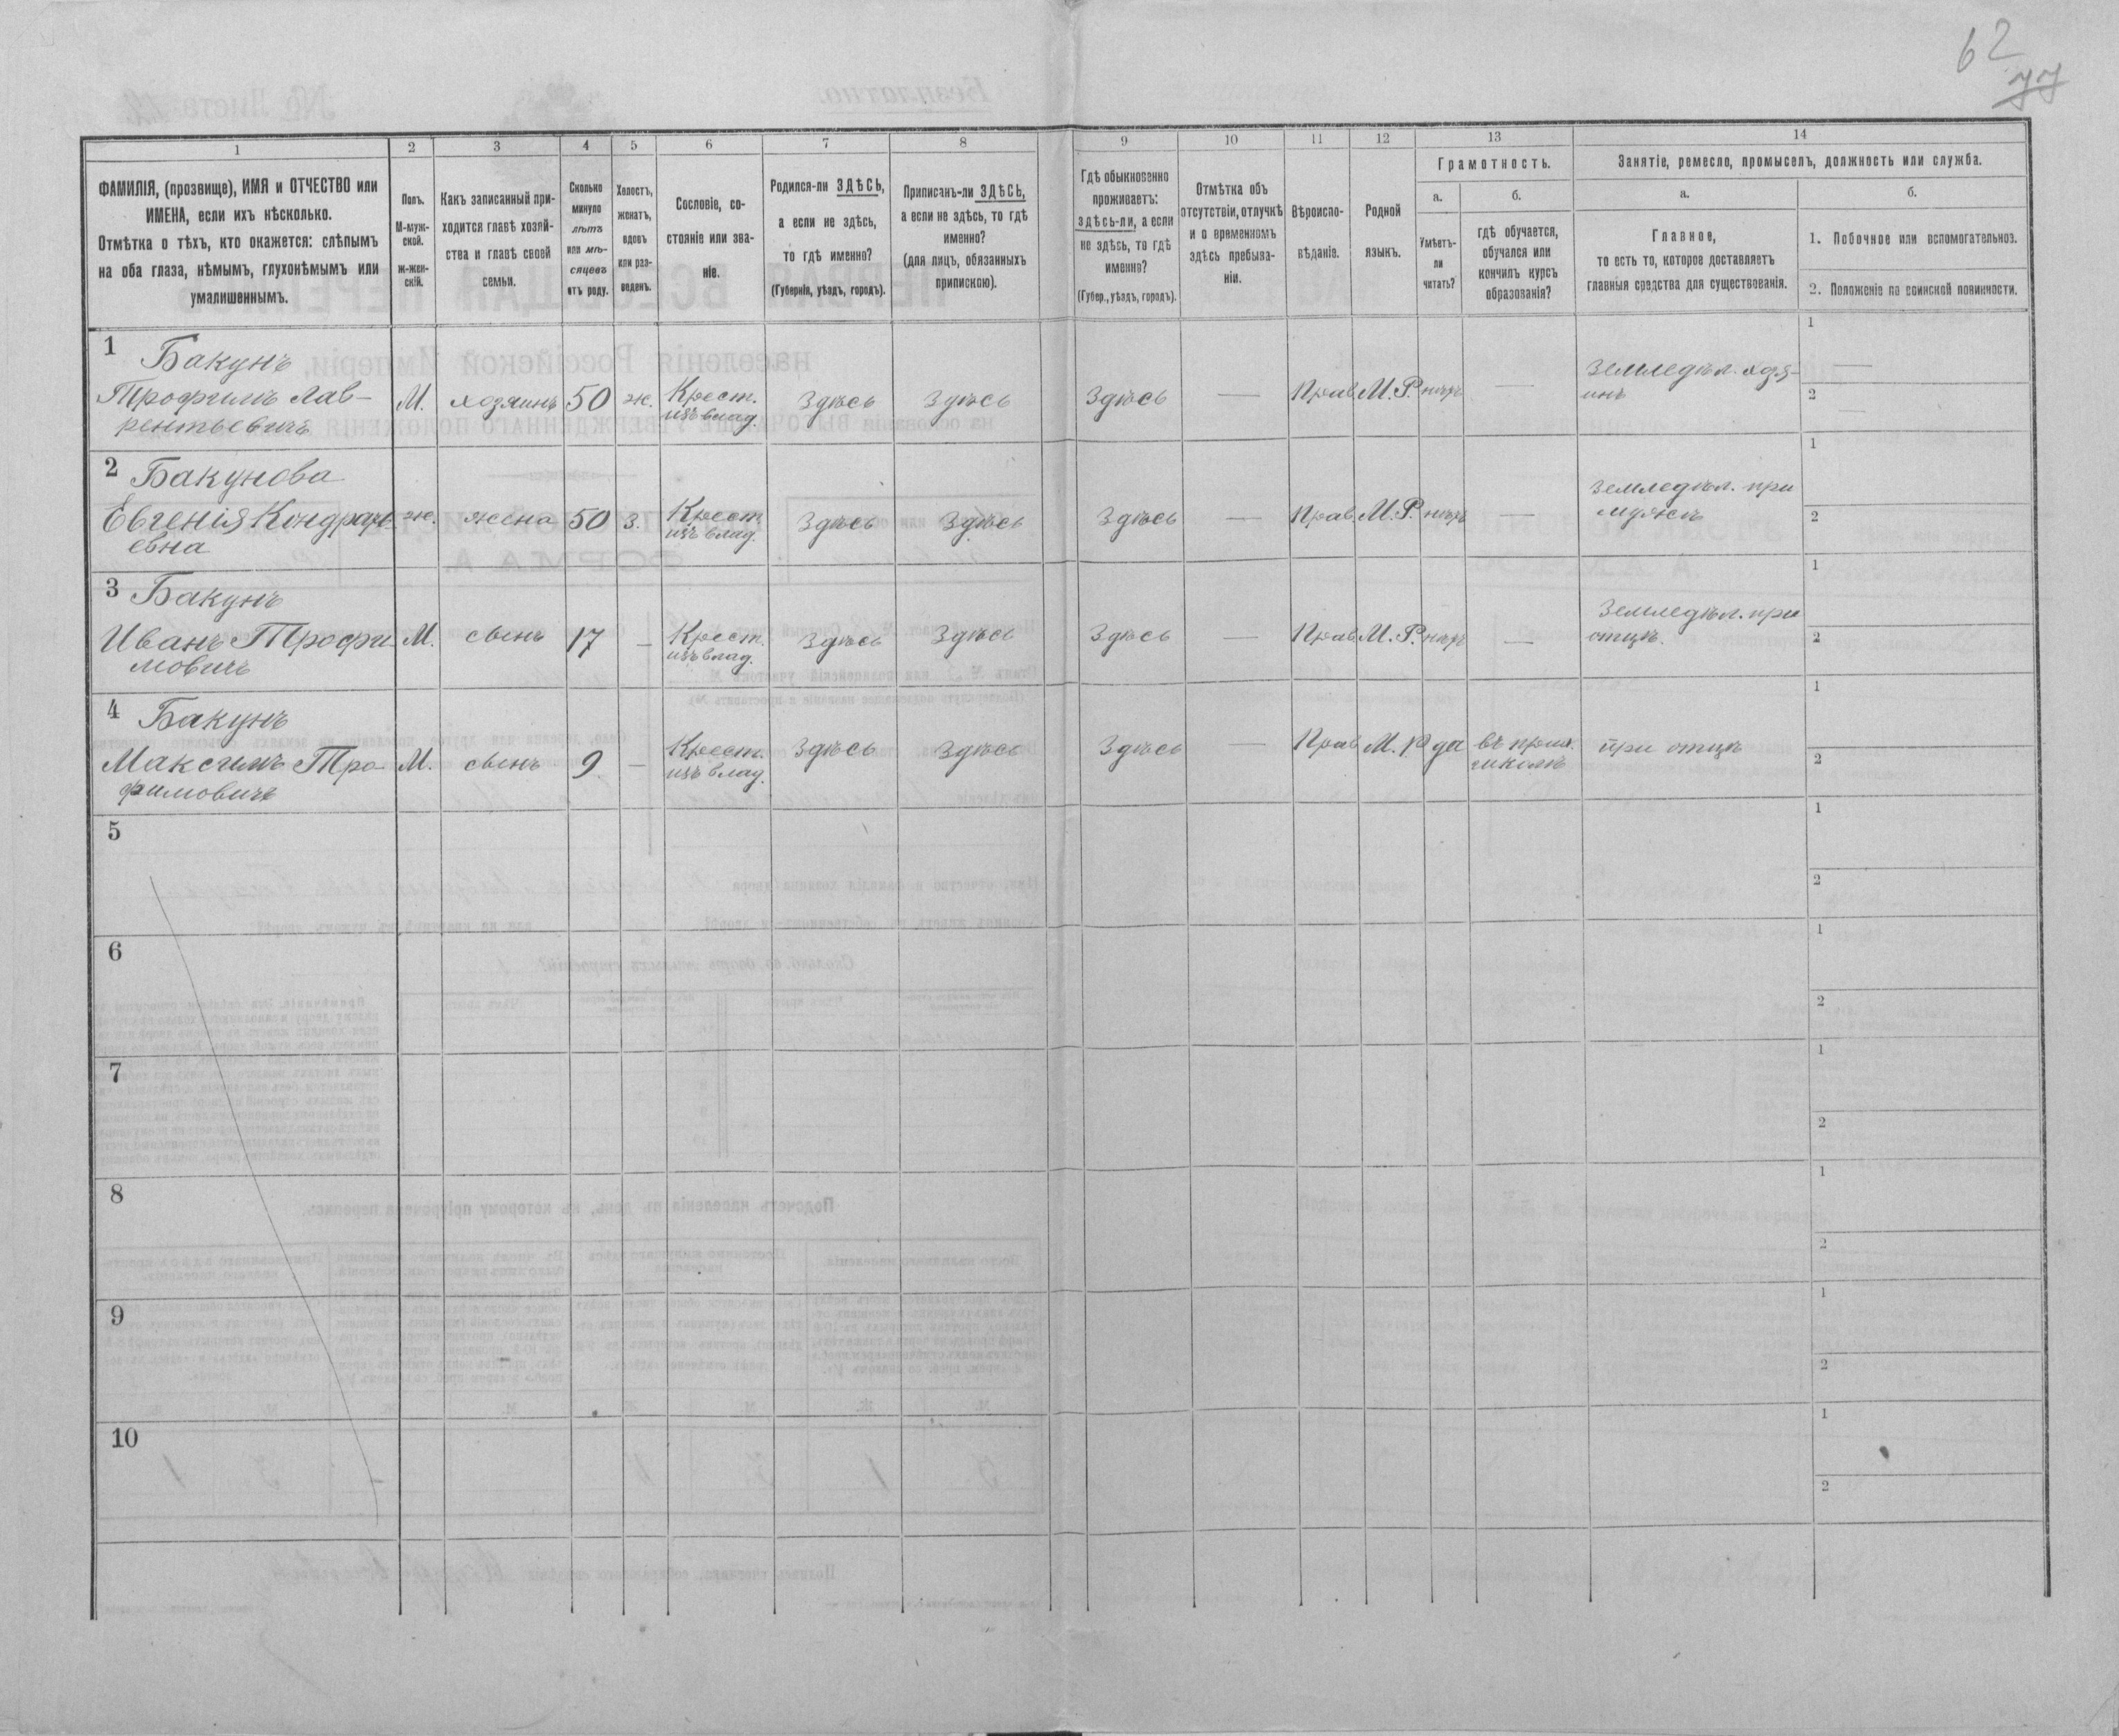 62
77
1
2
3
4
5
6
7
8
9
10
11
12
13
14
ФАМИЛІЯ, (прозвище), ИМЯ и ОТЧЕСТВО или
ИМЕНА, если ихъ нѣсколько.
Отмѣтка о тѣхъ, кто окажется: слѣпымъ
на оба глаза, нѣмымъ, глухонѣмымъ или
умалишеннымъ.
Полъ.
М-муж-
ской.
ж-жен-
скій.
Какъ записанный при-
ходится главѣ хозяй-
ства и главѣ своей
семьи.
Сколько
минуло
лѣтъ
или мѣ-
сяцевъ
отъ роду.
Холостъ,
женатъ,
вдовъ
или раз-
веденъ.
Сословіе, со-
стояніе или зва-
ніе.
Родился-ли ЗДѢСЬ,
а если не здѣсь,
то гдѣ именно?
(Губернія, уѣздъ, городъ).
Приписанъ-ли ЗДѢСЬ,
а если не здѣсь, то гдѣ
именно?
(для лицъ, обязанныхъ
припискою).
Гдѣ обыкновенно
проживаетъ:
здѣсь-ли, а если
не здѣсь, то гдѣ
именно?
(Губер., уѣздъ, городъ).
Отмѣтка объ
отсутствіи, отлучкѣ
и о временномъ
здѣсь пребыва-
ніи.
Вѣроиспо-
вѣданіе.
Родной
языкъ.
Грамотность.
а.
Умѣетъ-
ли
читать?
б.
гдѣ обучается,
обучался или
кончилъ курсъ
образованія?
Занятіе, ремесло, промыселъ, должность или служба.
а.
Главное,
то есть то, которое доставляетъ
главныя средства для существованія.
б.
1. Побочное или вспомогательное.
2. Положеніе по воинской повинности.
1 Бакунъ
Трофимъ Лав-
рентьевичъ
М. хозяинъ 50 ж. Крест.
изъ влад.
Здѣсь Здѣсь Здѣсь — Прав. М.Р. нѣтъ —
Земледѣл. хозя-
инъ
1 —
2 —
2 Бакунова
Евгенія Кондрать-
евна
ж. жена 50 З. Крест.
изъ влад.
Здѣсь Здѣсь Здѣсь — Прав. М.Р. нѣтъ —
Земледѣл. при
мужѣ
1
2
3 Бакунъ
Иванъ Трофи-
мовичъ
М. сынъ 17 — Крест.
изъ влад.
Здѣсь Здѣсь Здѣсь — Прав. М.Р. нѣтъ —
Земледѣл. при
отцѣ.
1
2
4 Бакунъ
Максимъ Тро-
фимовичъ
М. сынъ 9 — Крест.
изъ влад.
Здѣсь Здѣсь Здѣсь — Прав. М.Р. да въ прих.
школѣ
при отцѣ
1
2
5
1
2
6
1
2
7
1
2
8
1
2
9
1
2
10
1
2